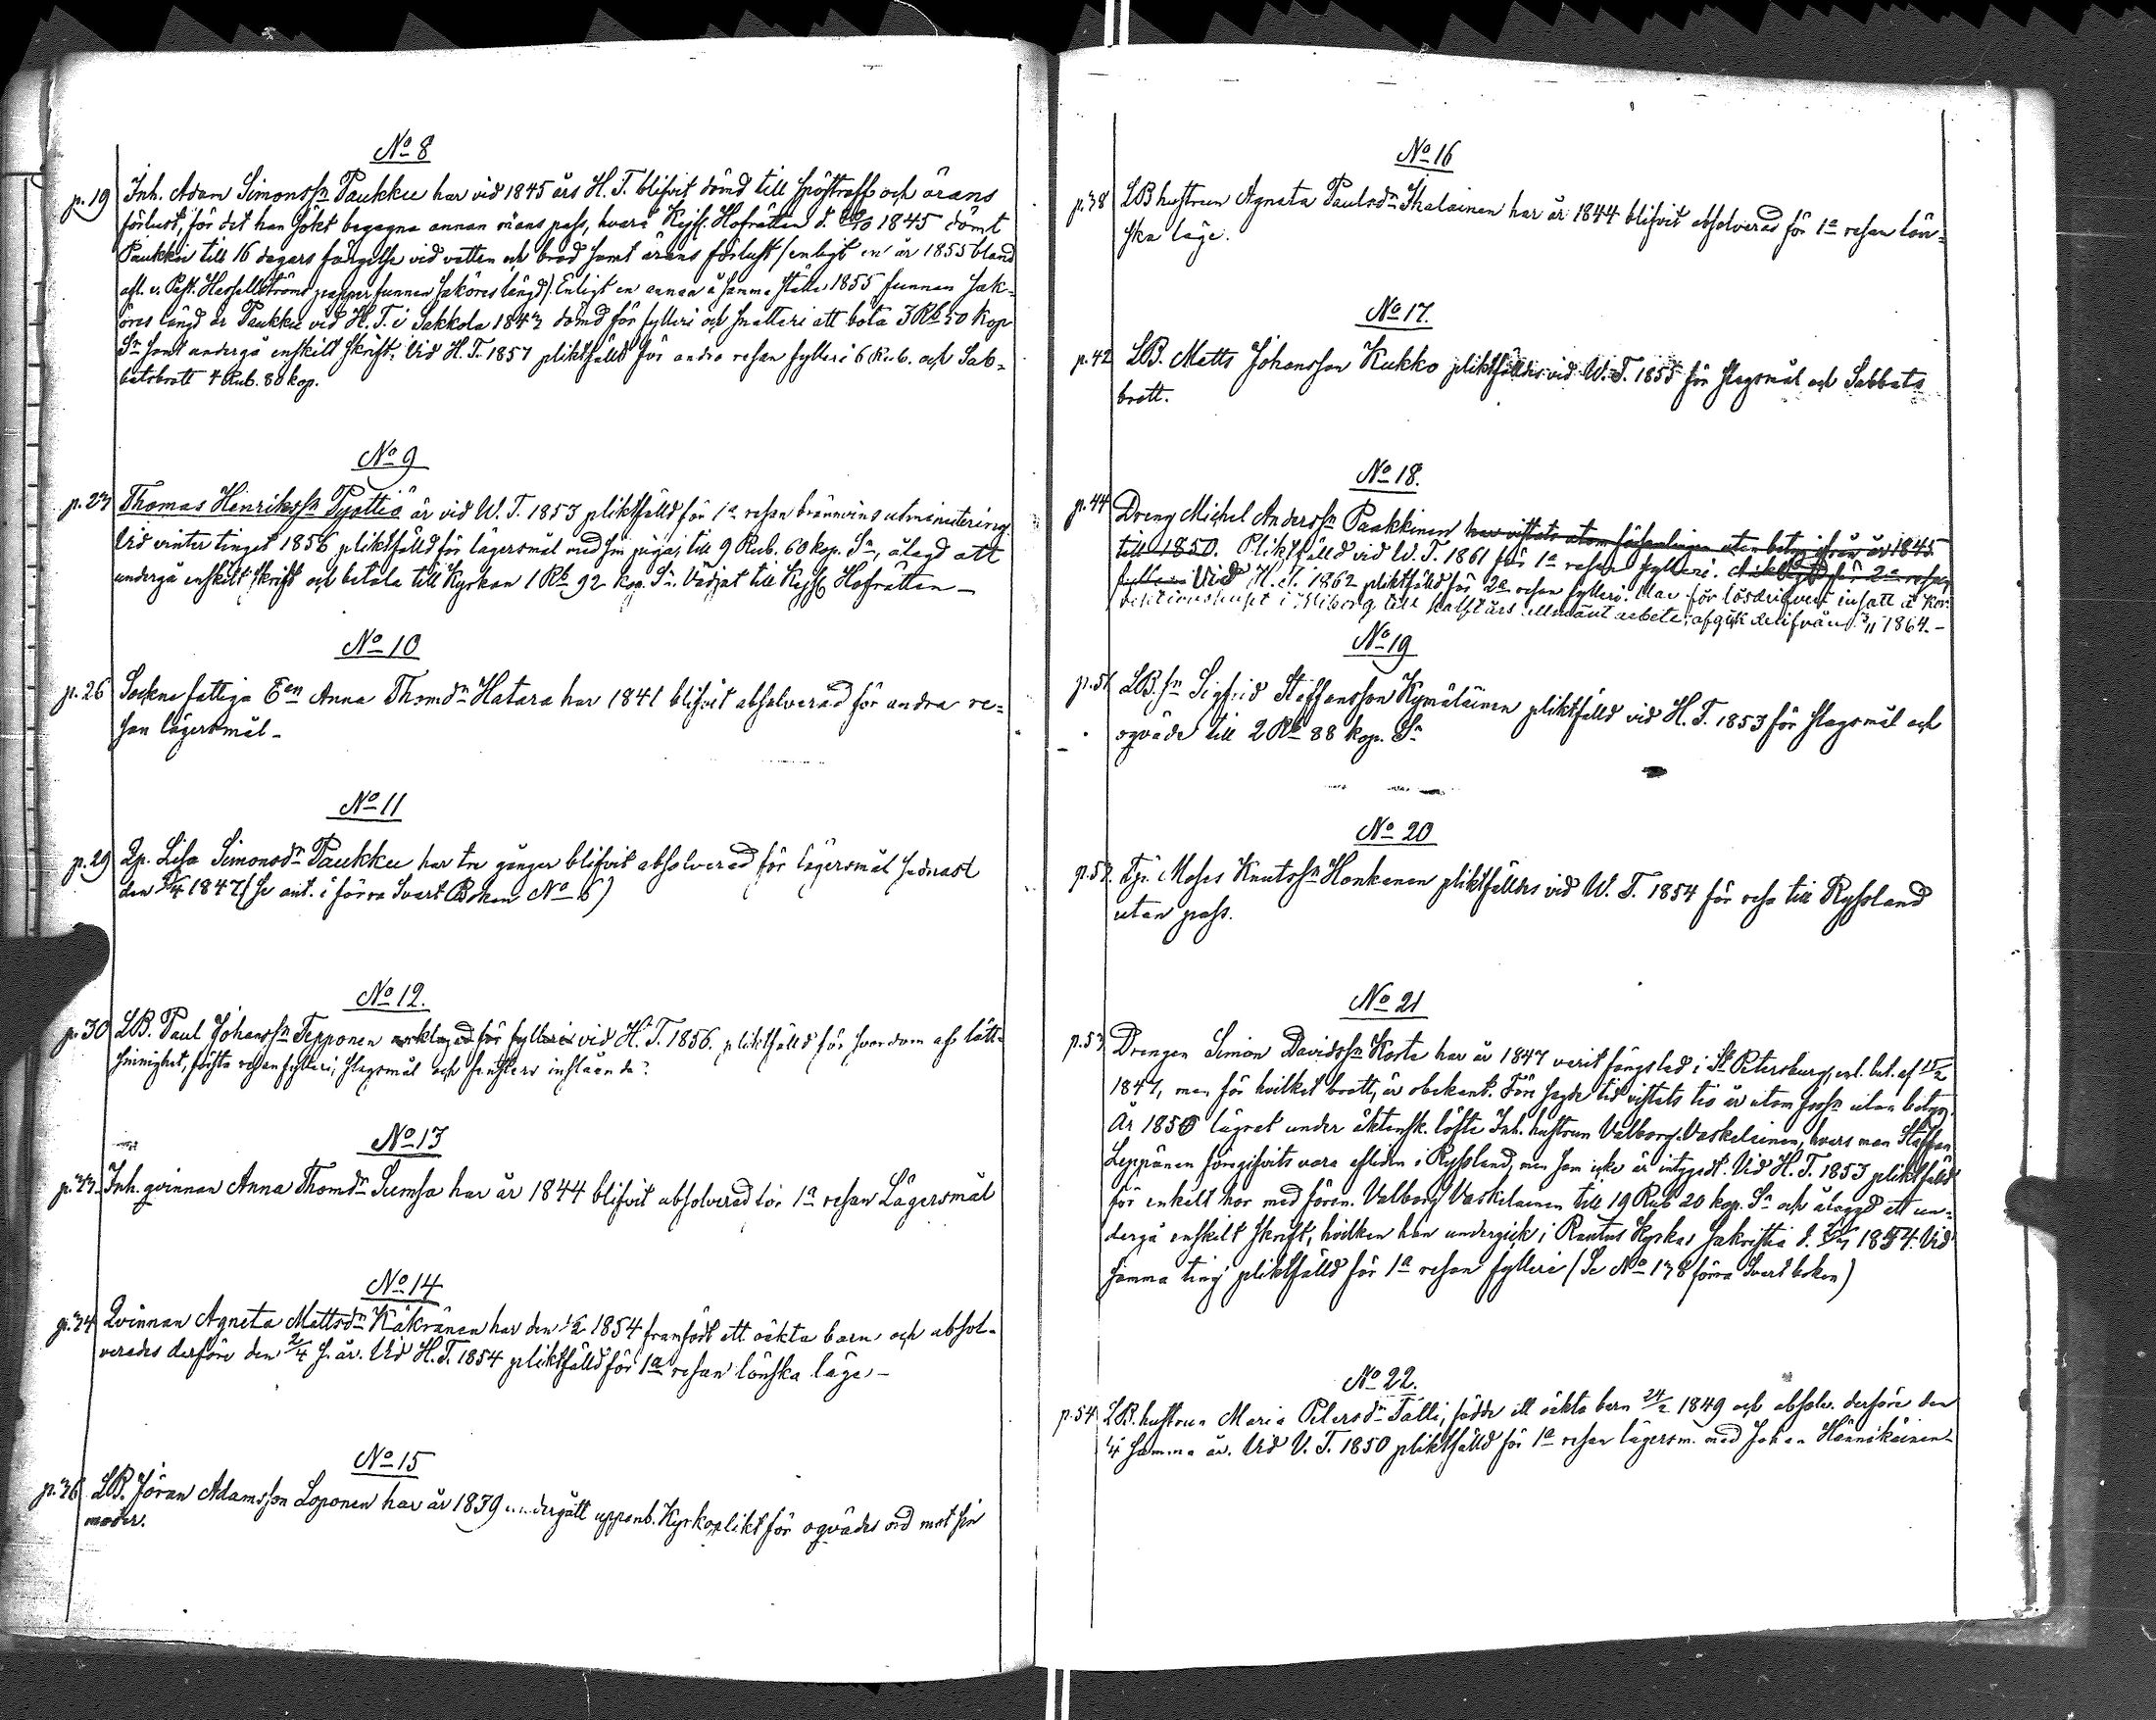 No 8
p. 19 Inh. Adam Simonssn Paukku har vid 1845 års H. T. blifvit dömd till spöstraff och ärans
förlust, för det han sökt begagna annan mans pass, hvarå Kejs. Hofrätten d. 1845 dömt
Paukku till 16 dagars fängelse vid vatten och bröd samt ärans förlust (enligt en år 1855 bland
afl. v. Past. Hesselströms papper funnen saköreslängd). Enligt en annan å samma ställe 1855 funnen sak-
öres längd är Paukku vid H. T. i Sakkola 1843 dömd för fylleri och snatteri att böta 3 Rb 50 kop
Sr samt undergå enskilt skrift. Vid H. T. 1857 pliktfälld för andra resan fylleri 6 Rub. och Sab-
batsbrott 4 Rub. 80 kop.
No 9
p. 23 Thomas Henrikssn Pyöttiö är vid W. T. 1853 pliktfälld för 1a resan brännvins utminutering
Vid vinter tinget 1856 pliktfälld för lägersmål med sin piga, till 9 Rub. 60 kop. Sr, ålagd att
undergå enskilt skrift och betala till Kyrkan 1 Rb 92 kop. Sr. Vädjat till Kejs. Hofrätten -
No 10
p. 26 Sockne fattiga Een Anna Thomdr Hatara har 1841 blifvit absolverad för andra re-
san lägersmål -
No 11
p. 29 Qp. Lisa Simonsdr Paukku har tre gånger blifvit absolverad för lägersmål sednast
den 1847 (Se ant. i förra Svart Boken No 6)
No 12.
p. 30 LB. Paul Johanssn Tepponen anklagad för fylleri vid H. T. 1856. pliktfälld för svordom af lätt-
sinnighet, första resan fylleri, slagsmål och fensters inslående.
No 13
p. 33. Inh. qvinnan Anna Thomdr Sumsa har år 1844 blifvit absolverad för 1a resan Lägersmål
No 14
p. 34 Qvinnan Agneta Mattsdr Käkränen har den 1/2 1854 framfödt ett oäkta barn och absol-
verades derföre den 2/4 s. år. Vid H. T. 1854 pliktfälld för 1a resan lönska läge -
No 15
p. 36 LB. Jöran Adamsson Loponen har år 1839 undergått uppenb. Kyrkoplikt för oqvädes ord mot sin
moder.
No 16
p. 38 LB hustrun Agnata Paulsdr Ihalainen har år 1844 blifvit absolverad för 1a resan lön-
ska läge.
No 17.
p. 42 LB. Matts Johansson Kukko pliktfälldes vid W. T. 1855 för slagsmål och Sabbats
brott.
No 18.
p. 44 Dreng Michel Anderssn Paakkinen har vistats utom församlingen utan betyg ifrån år 1845
till 1850. Pliktfälld vid W. T. 1861 för 1a resan fylleri. för 2a resan
fylleri Vid H. T. 1862 pliktfälld för 2a resan fylleri. Var för lösdrifveri insatt å kor-
rektionshuset i Wiborg, till halft års allmänt arbete; afgick derifrån 3/11 1864. -
No 19
p. 51 LB. sn Sigfrid Staffansson Kymäläinen pliktfälld vid H. T. 1853 för slagsmål och
oqväde till 2 Rb 88 kop. Sr
No 20
p. 52. Moses Knutssn Honkanen pliktfälldes vid W. T. 1854 för resa till Ryssland
utan pass.
No 21
p. 53 Drengen Simon Davidssn Korte har år 1847 varit fängslad i St Petersburg, enl. bet. af 15/2
1847, men för hvilket brott, är obekant. Före sagde tid vistats tio år utom sockn utan betyg.
År 1850 lägrat under äktensk. löfte Inh. hustrun Valborg Vaskelainen, hvars man Staffan
Leppänen föregifvits vara afliden i Ryssland, men som icke är intygadt. Vid H. T. 1853 pliktfälld
för enkelt hor med fören. Valborg Vaskelainen till 19 Rub 20 kop. Sr och ålaggd att un-
dergå enskilt skrift, hvilken han undergick i Rautus Kyrkas Sakristia d. 1854. Vid
samma ting pliktfälld för 1a resan fylleri (Se No 138 förra Svart boken)
No 22.
p. 54 LB. hustrun Maria Petersdr Talli, födde ett oäkta barn 24/2 1849 och absolv. derföre den
samma år. Vid V. T. 1850 pliktfälld för 1a resan lägersm. med Johan Hännikäinen -